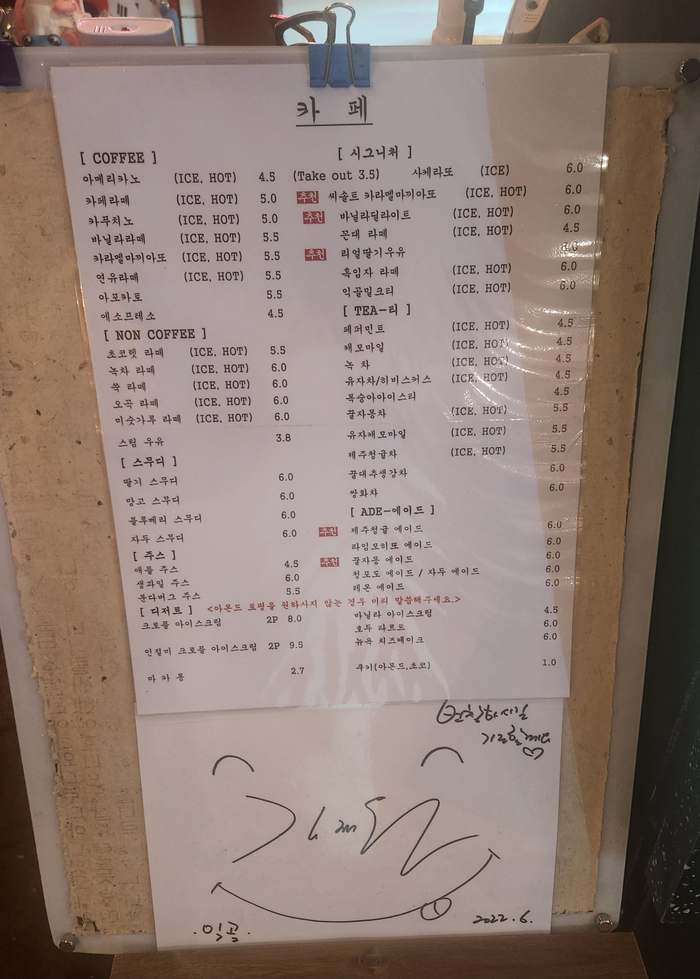 카 페
[ COFFEE ]
아메리카노 (ICE, HOT) 4.5 (Take out 3.5)
카페라떼 (ICE, HOT) 5.0
카푸치노 (ICE, HOT) 5.0
바닐라라떼 (ICE, HOT) 5.5
카라멜마끼아또 (ICE, HOT) 5.5
연유라떼 (ICE, HOT) 5.5
아포카토 5.5
에소프레소 4.5
[ NON COFFEE ]
초코렛 라떼 (ICE, HOT) 5.5
녹차 라떼 (ICE, HOT) 6.0
쑥 라떼 (ICE, HOT) 6.0
오곡 라떼 (ICE, HOT) 6.0
미숫가루 라떼 (ICE, HOT) 6.0
스팀 우유 3.8
[ 스무디 ]
딸기 스무디 6.0
망고 스무디 6.0
블루베리 스무디 6.0
자두 스무디 6.0
[ 주스 ]
애플 주스 4.5
생과일 주스 6.0
분다버그 주스 5.5
[ 시그니처 ]
사케라또 (ICE) 6.0
추천 씨솔트 카라멜마끼아또 (ICE, HOT) 6.0
추천 바닐라딜라이트 (ICE, HOT) 6.0
꼰대 라떼 (ICE, HOT) 4.5
추천 리얼딸기우유
흑임자 라떼 (ICE, HOT) 6.0
익골밀크티 (ICE, HOT) 6.0
[ TEA-티 ]
페퍼민트 (ICE, HOT) 4.5
캐모마일 (ICE, HOT) 4.5
녹 차 (ICE, HOT) 4.5
유자차/히비스커스 (ICE, HOT) 4.5
복숭아아이스티 4.5
꿀자몽차 (ICE, HOT) 5.5
유자캐모마일 (ICE, HOT) 5.5
제주청귤차 (ICE, HOT) 5.5
꿀대추생강차 6.0
쌍화차 6.0
[ ADE-에이드 ]
추천 제주청귤 에이드 6.0
라임모히또 에이드 6.0
추천 꿀자몽 에이드 6.0
청포도 에이드 / 자두 에이드 6.0
레몬 에이드 6.0
[ 디저트 ] <아몬드 토핑을 원하시지 않는 경우 미리 말씀해주세요.>
크로플 아이스크림 2P 8.0
인절미 크로플 아이스크림 2P 9.5
마 카 롱 2.7
바닐라 아이스크림 4.5
호두 타르트 6.0
뉴욕 치즈케이크 6.0
쿠키(아몬드,초코) 1.0
번창하시길
기원할께요
익골
2022.6.